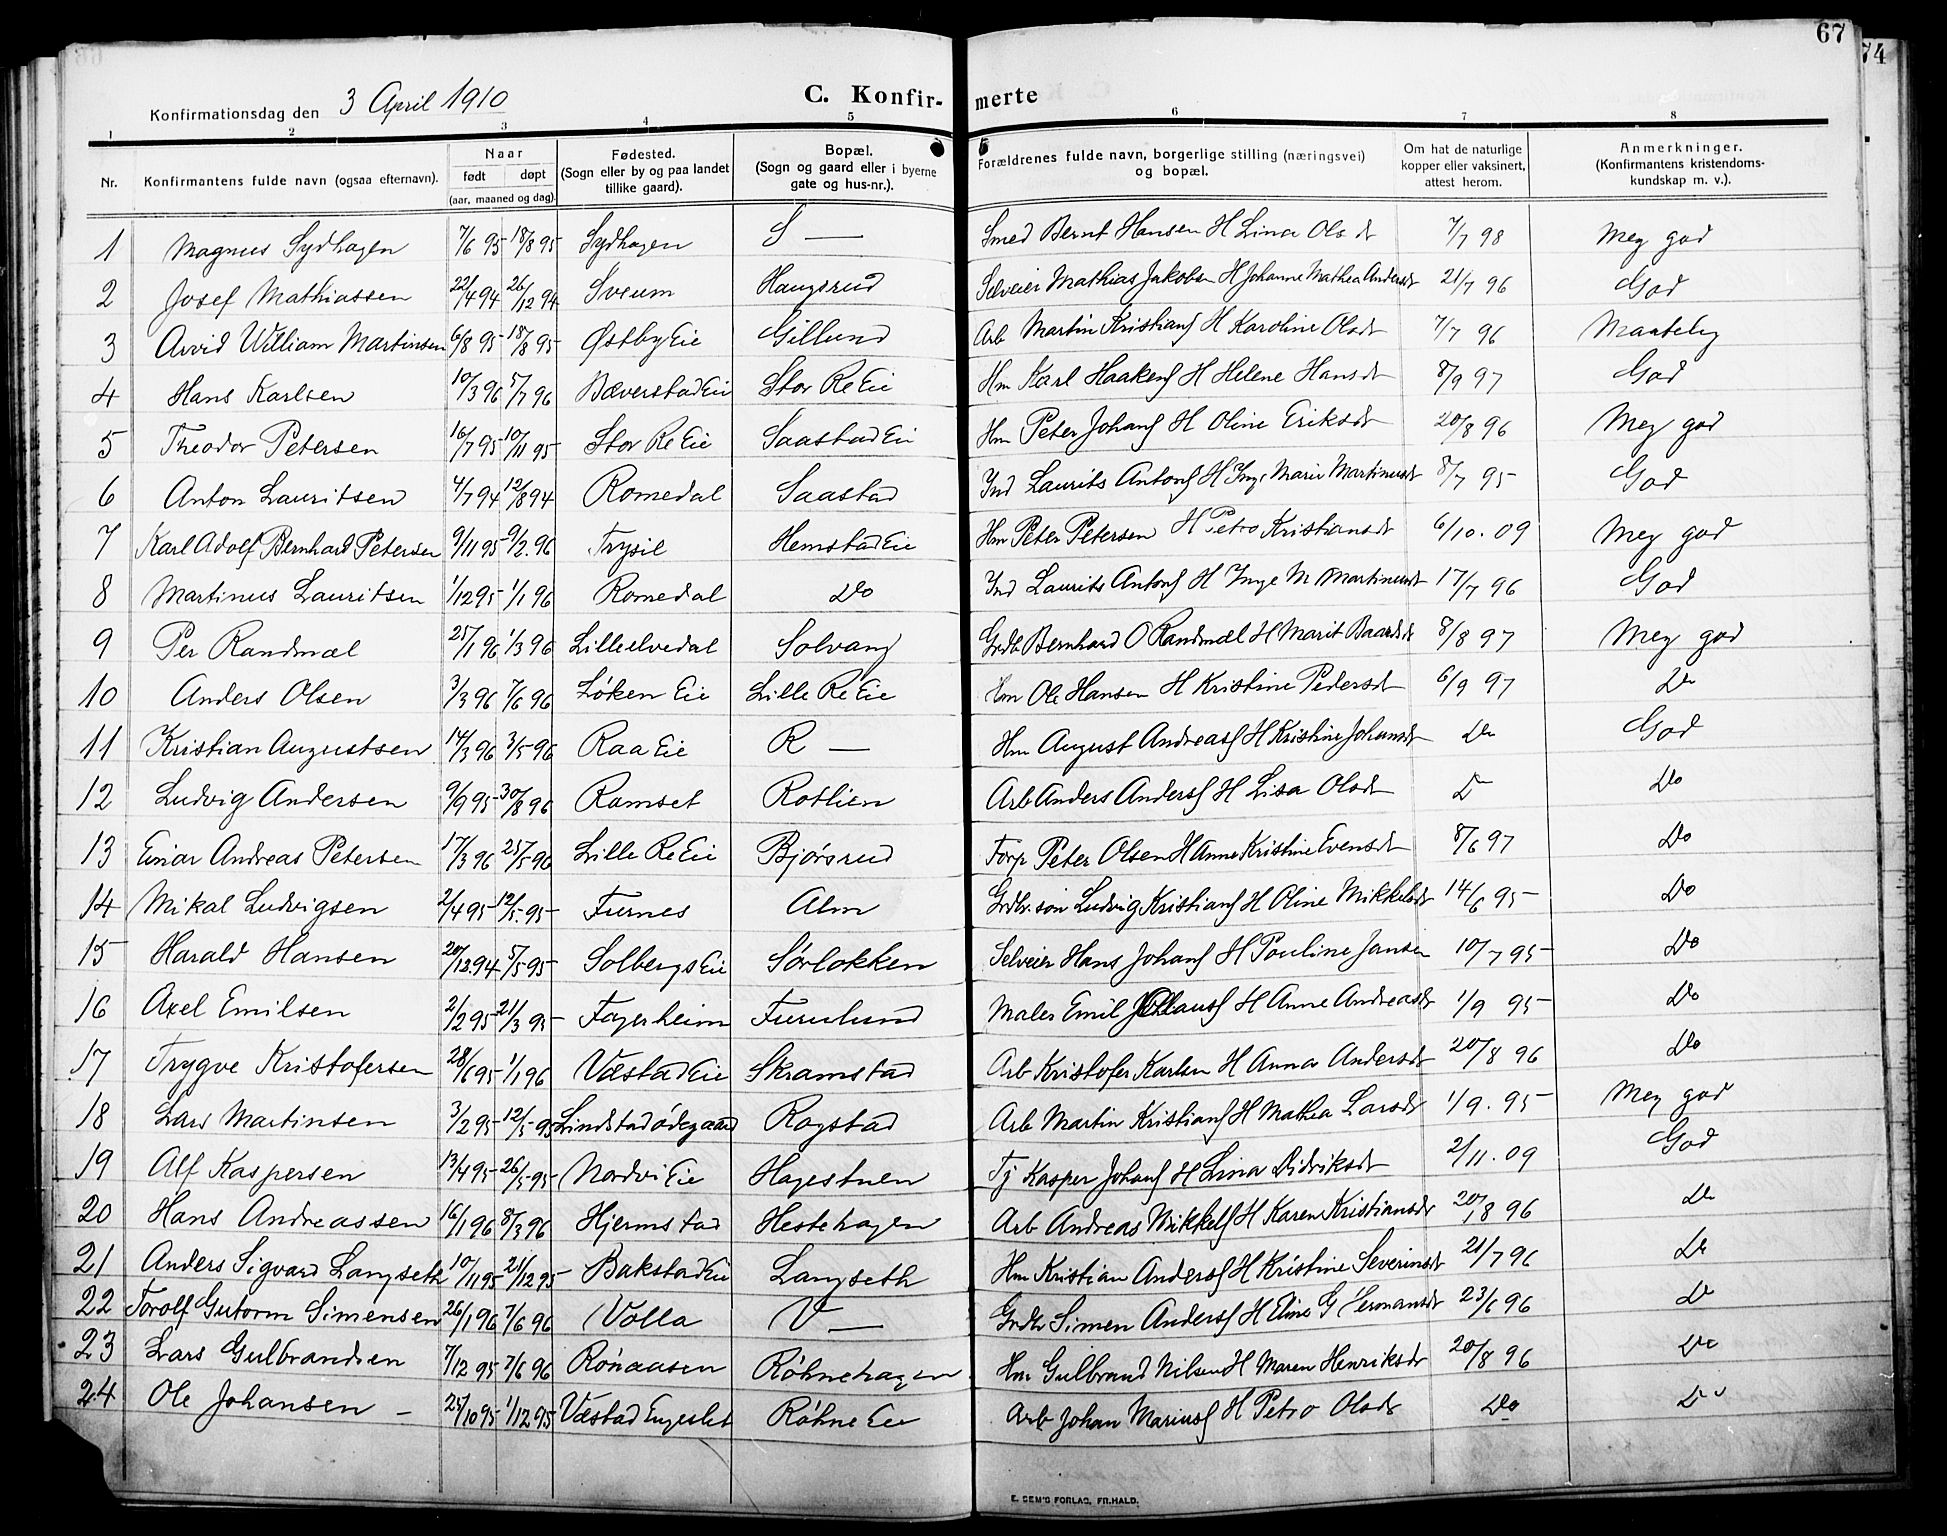 67
74
Konfirmationsdag den 3 April 1910
C. Konfirmerte
1 2 3 4 5 6 7 8
Nr. Konfirmantens fulde navn (ogsaa efternavn). Naar født døpt (aar, maaned og dag). Fødested. (Sogn eller by og paa landet tillike gaard). Bopæl. (Sogn og gaard eller i byerne gate og hus-nr.). Forældrenes fulde navn, borgerlige stilling (næringsvei) og bopæl. Om hat de naturlige kopper eller vaksinert, attest herom. Anmerkninger. (Konfirmantens kristendoms-kundskap m. v.).
1 Magnus Sydhagen 7/6 95 18/8 95 Sydhagen S — Smed Bernt Hansen H Lina Olsdt 7/7 98 Meg god
2 Josef Mathiassen 22/4 94 26/12 94 Sveum Haugsrud Selveier Mathias Jakobsen H Johanne Mathea Andersdt 21/7 96 God
3 Arvid William Martinsen 6/8 95 18/8 95 Østby Eie Gillund Arb Martin Kristians H Karoline Olsdt 7/7 96 Maatelig
4 Hans Karlsen 10/3 96 5/7 96 Bæverstad Eie Stor Re Eie Hm Karl Haakens H Helene Hansdt 8/9 97 God
5 Theodor Petersen 16/7 95 10/11 95 Stor Re Eie Saastad Ei Hm Peter Johans H Oline Eriksdt 20/8 96 Meg god
6 Anton Lauritsen 4/7 94 12/8 94 Romedal Saastad Ind Laurits Antons H Inge Marie Martinusdt 8/7 95 God
7 Karl Adolf Bernhard Petersen 9/11 95 9/2. 96 Trysil Hemstad Eie Hm Peter Petersen H Petro Kristiansdt 6/10. 09 Meg god
8 Martinus Lauritsen 1/12 95 1/1 96 Romedal Do Ind Laurits Antons H Inge M Martinusdt 17/7 96 God
9 Per Randmæl 25/1 96 1/3 96 Lilleelvedal Solvang Grdbr Bernhard O Randmæl H Marit Baardsdt 8/8 97 Meg god
10 Anders Olsen 3/3 96 7/6 96 Løken Eie Lille Re Eie Hm Ole Hansen H Kristine Pedersdt 6/9 97 Do
11 Kristian Augustsen 14/3 96 3/5 96 Raa Eie R — Hm August Andreas H Kristine Johansdt Do God
12 Ludvig Andersen 9/9 95 30/8 96 Ramset Rotlien Arb Anders Anders H Lisa Olsdt D Do
13 Einar Andreas Petersen 17/3 96 25/5 96 Lille Re Eie Bjørsrud Torp Peter Olsen H Anne Kristine Evensdt 8/6 97 Do
14 Mikal Ludvigsen 2/4 95 12/5. 95 Furnes Alm Grdbr. søn Ludvig Kristians H Oline Mikkelsdt 14/6 95 Do
15 Harald Hansen 20/12 94 5/5 95 Solbergs Eie Sørlokken Selveier Hans Johans H Pouline Jansen 10/7 95 Do
16 Axel Emilsen 2/2 95 21/3 95 Fagerheim Furulund Maler Emil H Anne Andreasdt 1/9 95 Do
17 Trygve Kristofersen 28/6 95 1/1 96 Væstad Eie Skramstad Arb Kristofer Karlsen H Anna Andersdt 20/8 96 Do
18 Lars Martinsen 3/2 95 12/5 95 Lindstadødegaard Rogstad Arb Martin Kristians H Mathea Larsdt 1/9. 95 Meg god
19 Alf Kaspersen 13/4 95 26/5 95 Nordvi Eie Hagestuen Tj Kasper Johans H Lina Didriksdt 2/11. 09 God
20 Hans Andreassen 16/1 96 8/3 96 Hjermstad Hestehagen Arb Andreas Mikkels H Karen Kristiansdt 20/8 96 Do
21 Anders Sigvard Langseth 10/11 95 21/12 95 Bakstad Eie Langseth Hm Kristian Anders H Kristine Severinsdt 21/7 96 Do
22 Torolf Gutorm Simensen 26/1 96 7/6 96 Volla V — Grdbr Simen Anders H Eline G Hermansdt 23/6 96 Do
23 Lars Gulbrandsen 7/12 95 7/6 96 Rønaasen Røhnehagen Hm Gulbrand Nilsen H Maren Henriksdt 20/8 96 Do
24 Ole Johansen — 25/10 95 1/12 95 Væstad Engeslet Røhne Eie Arb Johan Marius H Petro Olsdt Do Do
E. SEM'S FORLAG, FR.HALD.